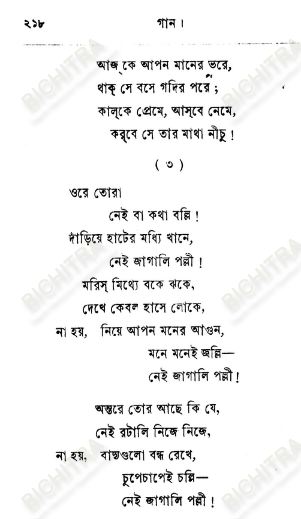 ২১৮ গান।
আজ্‌কে আপন মানের ভরে,
থাক্ সে বসে গদির পরে;
কাল্‌কে প্রেমে, আস্‌বে নেমে,
কর্‌বে সে তার মাথা নীচু!
( ৩ )
ওরে তোরা
নেই বা কথা বল্লি!
দাঁড়িয়ে হাটের মধ্যি খানে,
নেই জাগালি পল্লী!
মরিস্ মিথ্যে বকে ঝকে,
দেখে কেবল হাসে লোকে,
না হয়, নিয়ে আপন মনের আগুন,
মনে মনেই জল্লি—
নেই জাগালি পল্লী!
অন্তরে তোর আছে কি যে,
নেই রটালি নিজে নিজে,
না হয়, বাদ্যগুলো বন্ধ রেখে,
চুপেচাপেই চল্লি—
নেই জাগালি পল্লী!
BICHITRA
BICHITRA
BICHITRA
BICHITRA
BICHITRA
BICHITRA